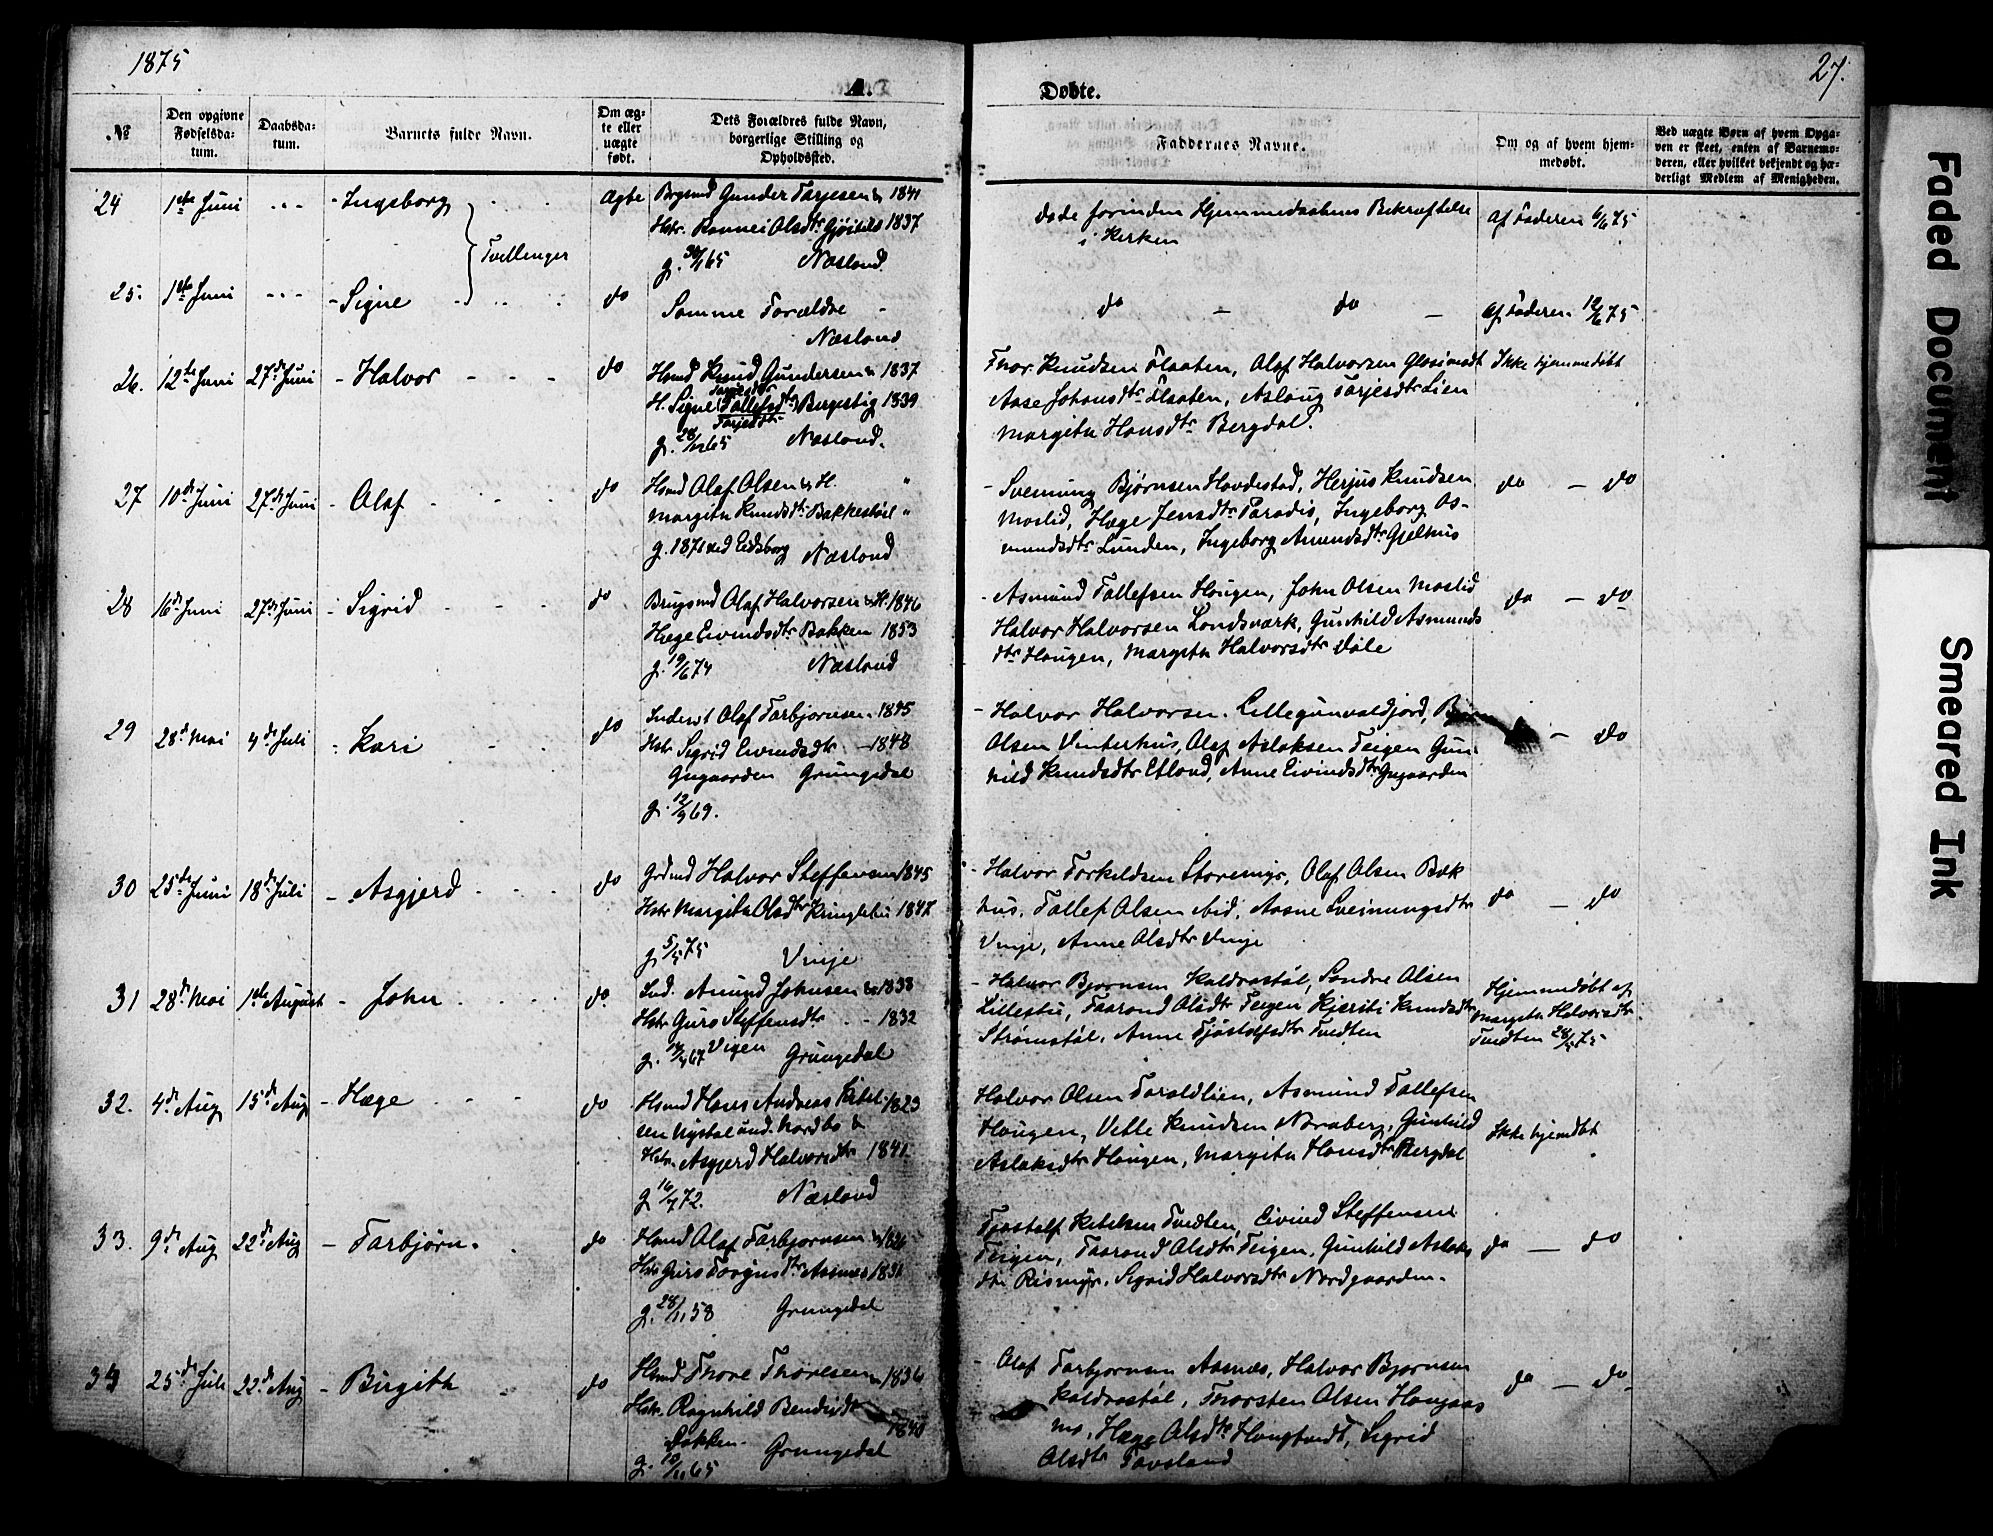 1875
27.
A.
Døbte.
№
Den opgivne Fødselsdatum.
Daabsdatum.
Barnets fulde Navn.
Om ægte eller uægte født.
Dets Forældres fulde Navn, borgerlige Stilling og Opholdssted.
Faddernes Navne.
Om og af hvem hjemmedøbt.
Ved uægte Børn af hvem Opgaven er skeet, enten af Barnemoderen, eller hvilket bekjendt og hæderligt Medlem af Menigheden.
24 1ste Juni - - - - Ingeborg
Tvillinger
Ægte
Gunder Tarjesen & 1841
Hstr. Ronnei Olsdtr 1837
g. 30/1 65 Næsland.
døde forinden Hjemmedaabens Bekræftelse
i Kirken
Af Faderen 6/6 75
25. 1ste Juni - - - - Signe
do
Samme Forældre
Næsland
do - do -
Af Faderen 12/6 75
26. 12te Juni 27de Juni - Halvor - - -
do
Hsmd Knud Gundersen & 1837
H. Signe Tallefsdtr Bergestig 1839
Tarjesdtr
g. 28/12 65 Næsland.
Thor Knudsen Flaaten, Olaf Halvorsen
Aase Johansdtr Flaaten, Aslaug Tarjesdtr Lien
Margita Hansdtr Bergdal.
Ikke hjemmedøbt
27 10de Juni 27de Juni - Olaf - - -
do
Hsmd Olaf Olsen & H. "
Margita Knudsdtr Bakkestøil "
g. 1871 ved Eidsborg Næsland
- Sveinung Bjørnsen Hovdestad, Herjus Knudsen
Moslid, Hæge Jensdtr Paradis, Ingeborg Os-
mundsdtr Lunden, Ingeborg Amundsdtr Gjelhus
do - do
28 16de Juni 27de Juni - Sigrid - - -
do
Brugsmd Olaf Halvorsen & H. 1846
Hæge Eivindsdtr Bakken 1853
g. 19/6 74 Næsland
- Asmund Tallefsen Haugen, John Olsen Moslid
Halvor Halvorsen Landsværk, Gunhild Asmunds
dtr Haugen, Margita Halvorsdtr Dale
do - do
29 28de Mai 4de Juli - Kari - -
do
Inderst Olaf Tarbjørnsen 1845
Hstr Sigrid Eivindsdtr - 1848
Gugaarden Grungedal
g. 12/9 69.
- Halvor Halvorsen Lillegunvaldjord,
Olsen Vinterhus, Olaf Aslaksen Teigen Gun-
hild Knudsdtr Edland, Anne Eivindsdtr Gugaarden
- do
30 25de Juni 18de Juli - Asgjerd - - -
do
Grdmd Halvor Steffensen 1845
Hstr Margita Olsdtr 1847
g. 5/5 75 Vinje
- Halvor Torkildsen Storemyr, Olaf Olsen Bæk
hus, Tallef Olsen ibid, Aasne Sveinungsdtr
Vinje, Anne Olsdtr Vinje
do - do
31 28de Mai 1ste August - John - - - -
do
Ind. Amund Johnsen & 1838
Hstr Guro Steffensdtr - - 1832
Vigen Grungedal
- Halvor Bjørnsen Kaldrastøl, Sondre Olsen
Lillestu, Taarand Olsdtr Teigen Kjersti Knudsdtr
Strømstøl, Anne Tjøstolfsdtr Tvedten
Hjemmedøbt af
Margita Halvorsdtr
Tvedten 28/5 75
32. 4de Aug 15de Aug - Hæge - - -
do
Hsmd Hans Andreas Kitil- 1823
sen Nystøl und. Nordbø &
Hstr. Asgjerd Halvorsdtr 1841
g. 16/7 72. Næsland
Halvor Olsen Taraldlien, Asmund Tallefsen
Haugen, Vetle Knudsen Noraberg, Gunhild
Aslaksdtr Haugen, Margita Hansdtr Bergdal
Ikke hjemdbt
33. 9de Aug 22de Aug - Tarbjørn. -
do
Hsmd Olaf Tarbjørnsen & 1826
Hstr Guro Torginsdtr Aasnæs 1831
g. 28/11 58 Grungedal
Tjøstolf Kitilsen Tvedten, Eivind Steffensen
Teigen, Taarand Olsdtr Teigen, Gunhild Aslaks
dtr Rismyr. Sigrid Halvorsdtr Nordgaarden.
do - do
34 25de Juli 22de Aug - Birgith -
do
Hsmd Thore Thoresen & 1836
Hstr. Ragnhild Bendixdtr 1840
Bakken. Grungedal
g. 10/11 65
- Olaf Tarbjørnsen Aasnæs, Halvor Bjørnsen
Kaldrastøl, Thorsten Olsen Haugaas
mo, Hæge Olsdtr Haugtvedt, Sigrid
Olsdtr Tavsland
do - do
Faded Document
Smeared Ink